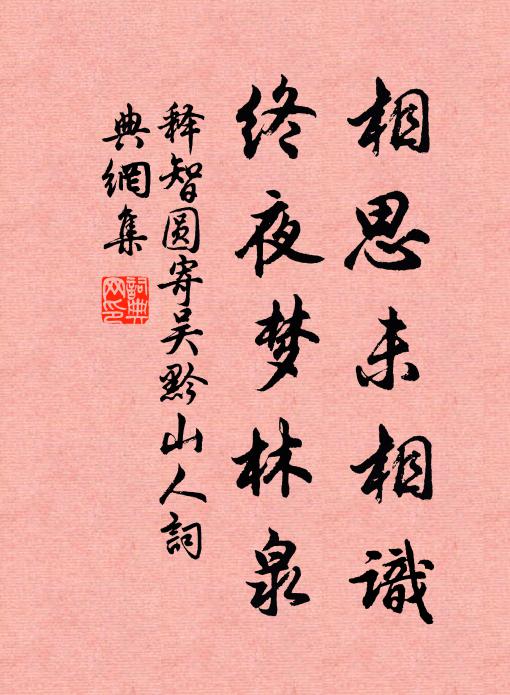 相思未相識
终夜梦林泉
释智圆寄吴黔山人詞
典網集
詞典网印